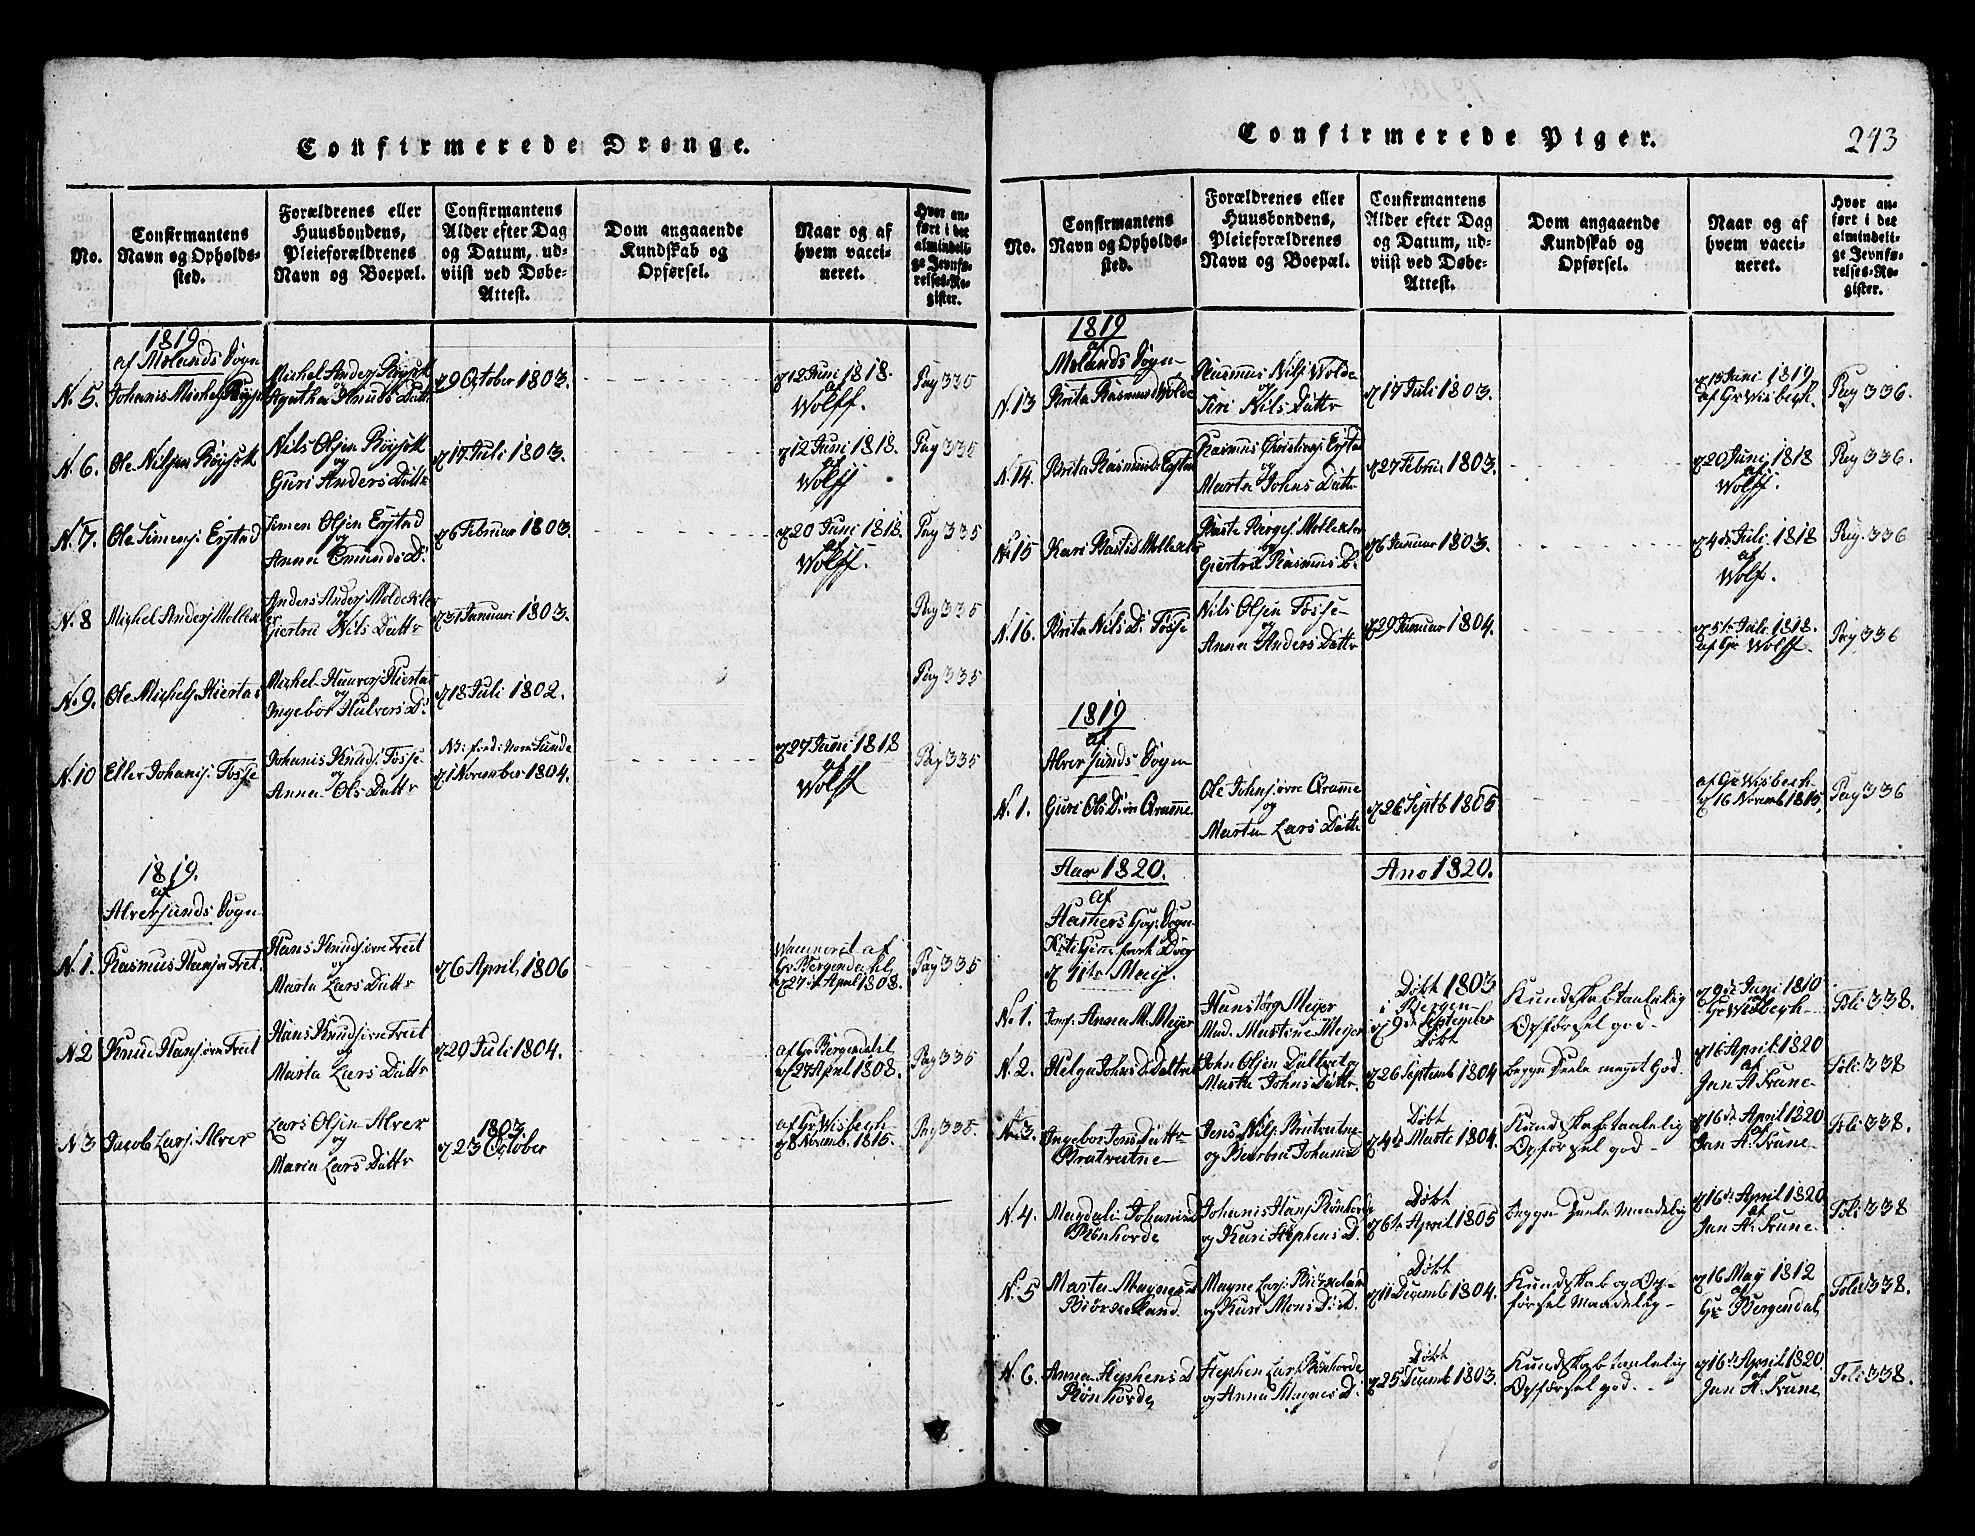 Confirmerede Drenge.
No.
Confirmantens
Navn og Opholds-
sted.
Forældrenes eller
Huusbondens,
Pleieforældrenes
Navn og Boepæl.
Confirmantens
Alder efter Dag
og Datum, ud-
viist ved Døbe-
Attest.
Dom angaaende
Kundskab og
Opførsel.
Naar og af
hvem vacci-
neret.
Hvor an-
ført i det
almindeli-
ge Jevnfø-
relses-Re-
gister.
1819
af Molands Sogn
N. 5.
Johanis Michels
Michel Anders
og
Agatha Knuds Dattr
9 October 1803.
12 Juni 1818.
af
Wolff.
Pag 335
N. 6.
Ole Nilsen
Nils Olsen
og
Guri Anders Dattr
17 Juli 1803.
12 Juni 1818.
af
Wolff
Pag 335
N. 7.
Ole Simens: Erstad
Simen Olsen Erstad
og
Anna Emunds D:
6 Februar 1803.
20 Juni 1818.
af
Wolff.
Pag 335
N. 8
Michel Anders
Anders Anders
og
Giertru Nils Dattr
31 Januari 1803.
Pag 335
N. 9.
Ole Michels Hiertas
Michel Hiertas
og
Ingebor D:
18 Juli 1802.
Pag 335
N. 10
Eller Johanis: Fosse
Johanis Knuds: Fosse
og
Anna Ols Dattr
1 November 1804.
27 Juni 1818
af
Wolff
Pag 335
1819.
af
Alversunds Sogn
N. 1.
Rasmus Hans
Hans Knuds
og
Marta Lars Dattr
6 April, 1806
af
Gr Bergendahl
27 April 1808.
Pag 335
N. 2
Knud Hans
Hans Knuds
og
Marta Lars Dattr
20 Juli 1804.
af Gr Bergendahl
27 April 1808.
Pag 335
N. 3
Jacob Lars: Alver
Lars Olsen Alver
og
Maria Lars Dattr
1803
23 October
af Gr Wisbegh
8 Novemb. 1815.
Pag 335.
Confirmerede Piger.
243
No.
Confirmantens
Navn og Opholds-
sted.
Forældrenes eller
Huusbondens,
Pleieforældrenes
Navn og Boepæl.
Confirmantens
Alder efter Dag
og Datum, ud-
viist ved Døbe-
Attest.
Dom angaaende
Kundskab og
Opførsel.
Naar og af
hvem vacci-
neret.
Hvor an-
ført i det
almindeli-
ge Jevnfø-
relses-Re-
gister.
1819
af
Molands Sogn
N. 13
Brita Rasmus Wolde
Rasmus Nils Wolde
og
Siri Nils Dattr
17 Juli 1803.
15 Juni 1819
af Gr Wisbegh.
Pag 336.
N. 14.
Brita Rasmus Erstad
Rasmus Erstad
og
Marta Johns Dattr
27 Februa 1803.
20 Juni 1818
af
Wolff.
Pag 336.
N. 15
Kari
og
Giertru Rasmus D:
6 Januar 1803.
4de Juli 1818
af
Wolf.
Pag. 336
N. 16.
Brita Nils D: Fosse
Nils Olsen Fosse
og
Anna Anders Dattr
29 Januar 1804.
5te Juli 1818.
af Gr Wolff.
Pag 336
1819
af
Alversunds Sogn
N. 1.
Guri Ols D: øvre Qvamme
Ole Johns øvre Qvamme
og
Marta Lars Dattr
26 Septb 1805
af Gr Wisbegh
16 Novemb 1815,
Pag 336
Aar 1820.
Ano 1820.
af
Hammers Sogn
11te Maij.
No. 1.
Jomf: Anna M. Meyer
Hans Jørg Meijer
Mad. Martine Meijer
Døbt 1803
i Bergen
9de September
Kundskab taalelig
Opførsel god
9de Juni 1810
Gr Wisbegh.
Foli 338.
N. 2.
Helga Johns D.
John Olsen
og
Marta Johns Dattr.
Døbt
26 Septemb 1804
begge Deele meget God.
16 April 1820
af
Jan A. Trune
Foli 338
N. 3.
Ingebor Jens Dattr
Bratvetne
Jens Nils Bratvetne
og Barbru Johanis D
Døbt
4de Marts 1804.
Kundskab taalelig
Opførsel god
16de April 1820
af
Jan A. Trune
Foli 338.
N. 4.
Magdali Johanis D
Rønhovde
Johanis Hans Rønhovde
og Kari Stephens D.
Døbt
6te April 1805
begge Deele Maadelig
16de April 1820
af
Jan A. Trune
Foli 338
N. 5
Marta Magnes D
Biørneland
Magne Lars:
og Kari Mons D.
Døbt
11 Decemb 1804.
Kundskab og Op-
førsel Maadelig
16 May 1812
af
Gr Bergendal,
Foli 338.
N. 6.
Anna Stephens D
Rønhovde
Stephen Lars Rønhovde
og Anna Magnes D.
Døbt
25 Decemb 1803.
Kundskab taalelig
Opførsel god.
16de April 1820.
af
Jan A. Trune
Foli 338.